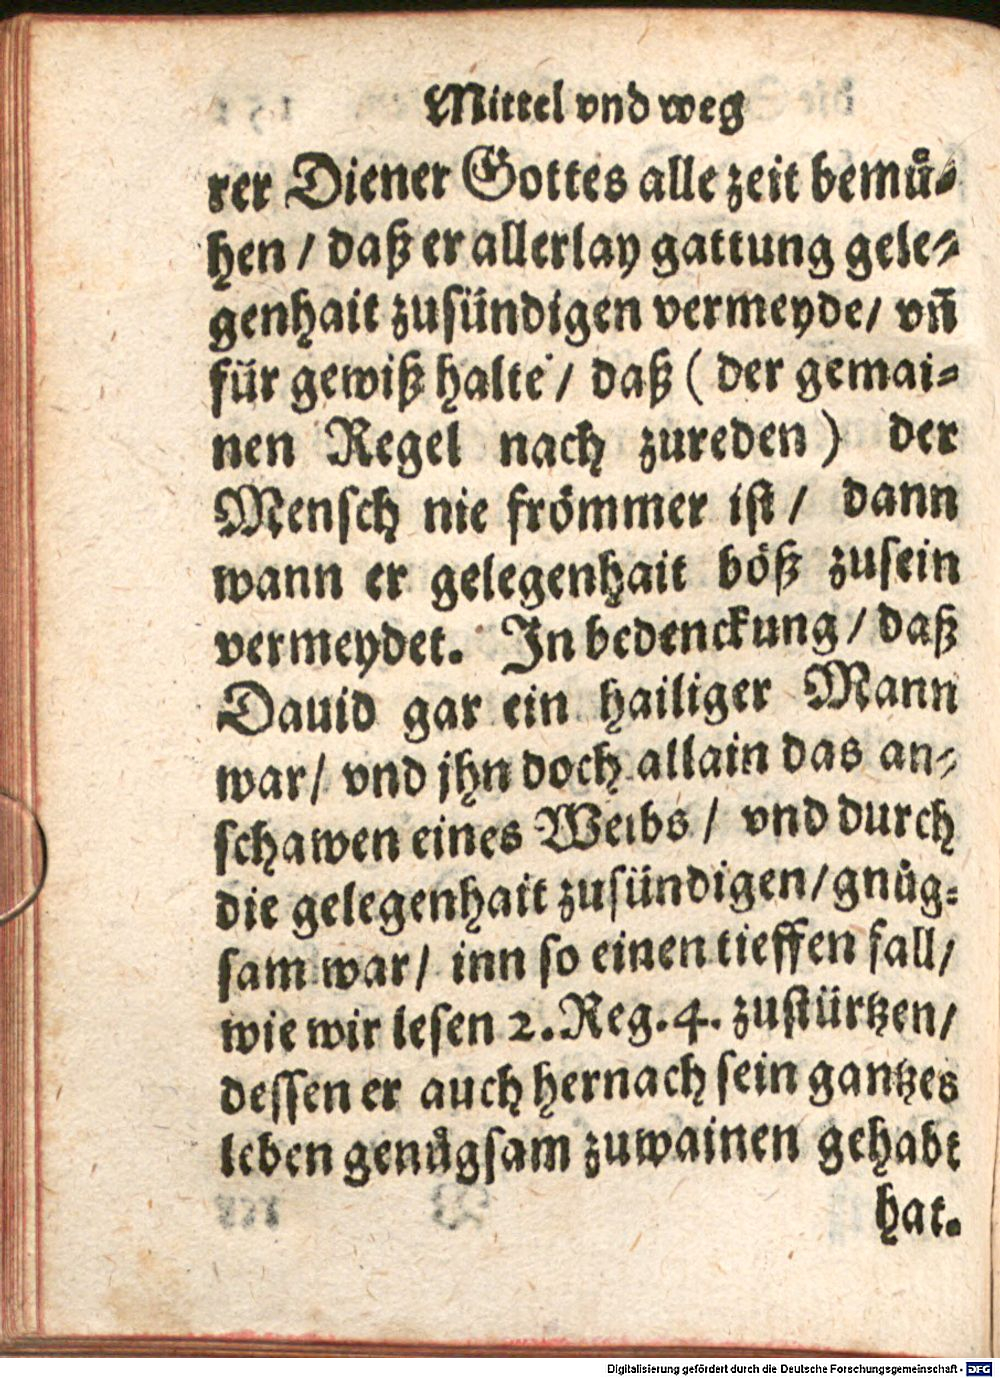 Mittel vnd weg
rer Diener Gottes alle zeit bemuͤ-
hen / daß er allerlay gattung gele-
genhait zusündigen vermeyde / vñ
für gewiß halte / daß ( der gemai-
nen Regel nach zureden ) der
Mensch nie frömmer ist / dann
wann er gelegenhait böß zusein
vermeydet. In bedenckung / daß
Dauid gar ein hailiger Mann
war / vnd jhn doch allain das an-
schawen eines Weibs / vnd durch
die gelegenhait zusündigen / gnuͤg-
sam war / inn so einen tieffen fall /
wie wir lesen 2. Reg. 4. zustürtzen /
dessen er auch hernach sein gantzes
leben genuͤgsam zuwainen gehabt
hat.
Digitalisierung gefördert durch die Deutsche Forschungsgemeinschaft - DFG